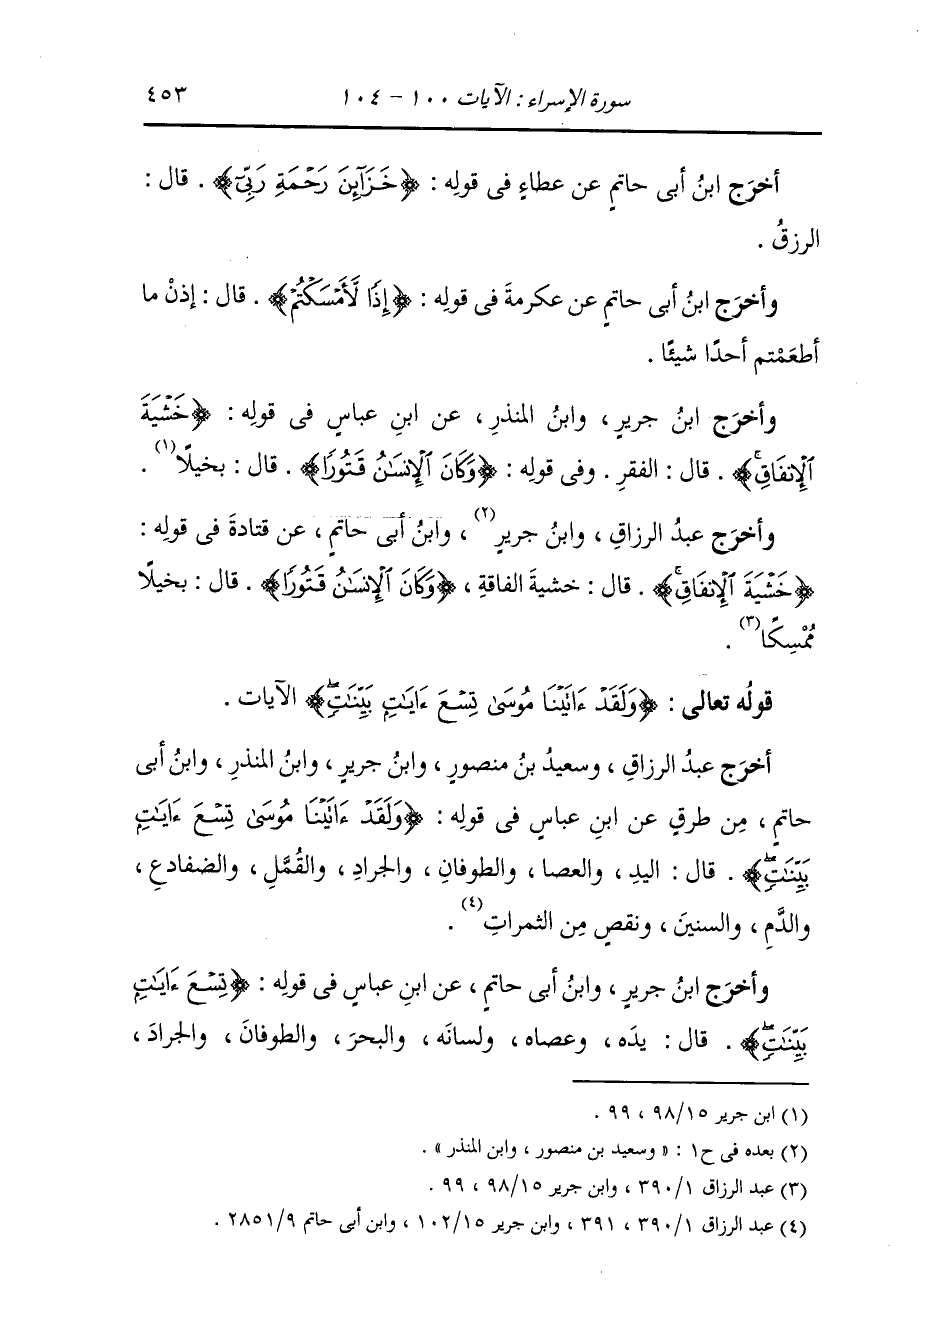 سورة الإسراء : الآيات ١٠٠ - ١٠٤ ٤٥٣
أخرَج ابنُ أبى حاتمٍ عن عطاءٍ فى قولِه : ﴿خَزَآئِنَ رَحْمَةِ رَبِّىٓ﴾ . قال :
الرزقُ .
وأخرَج ابنُ أبى حاتمٍ عن عكرمةَ فى قولِه : ﴿إِذًا لَّأَمْسَكْتُمْ﴾ . قال : إذنْ ما
أطعَمْتم أحدًا شيئًا .
وأخرَج ابنُ جريرٍ ، وابنُ المنذرِ ، عن ابنِ عباسٍ فى قولِه : ﴿خَشْيَةَ
ٱلْإِنفَاقِۚ﴾ . قال : الفقرِ . وفى قولِه : ﴿وَكَانَ ٱلْإِنسَٰنُ قَتُورًا﴾ . قال : بخيلًا(١) .
وأخرَج عبدُ الرزاقِ ، وابنُ جريرٍ(٢) ، وابنُ أبى حاتمٍ ، عن قتادةَ فى قولِه :
﴿خَشْيَةَ ٱلْإِنفَاقِۚ﴾ . قال : خشيةَ الفاقةِ ، ﴿وَكَانَ ٱلْإِنسَٰنُ قَتُورًا﴾ . قال : بخيلًا
مُمْسِكًا(٣) .
قولُه تعالى : ﴿وَلَقَدْ ءَاتَيْنَا مُوسَىٰ تِسْعَ ءَايَٰتٍۭ بَيِّنَٰتٍۖ﴾ الآيات .
أخرَج عبدُ الرزاقِ ، وسعيدُ بنُ منصورٍ ، وابنُ جريرٍ ، وابنُ المنذرِ ، وابنُ أبى
حاتمٍ ، مِن طرقٍ عن ابنِ عباسٍ فى قولِه : ﴿وَلَقَدْ ءَاتَيْنَا مُوسَىٰ تِسْعَ ءَايَٰتٍۭ
بَيِّنَٰتٍۖ﴾ . قال : اليدِ ، والعصا ، والطوفانِ ، والجرادِ ، والقُمَّلِ ، والضفادعِ ،
والدَّمِ ، والسنينَ ، ونقصٍ مِن الثمراتِ(٤) .
وأخرَج ابنُ جريرٍ ، وابنُ أبى حاتمٍ ، عن ابنِ عباسٍ فى قولِه : ﴿تِسْعَ ءَايَٰتٍۭ
بَيِّنَٰتٍۖ﴾ . قال : يدَه ، وعصاه ، ولسانَه ، والبحرَ ، والطوفانَ ، والجرادَ ،
(١) ابن جرير ٩٨/١٥ ، ٩٩ .
(٢) بعده فى ح١ : « وسعيد بن منصور ، وابن المنذر » .
(٣) عبد الرزاق ٣٩٠/١ ، وابن جرير ٩٨/١٥ ، ٩٩ .
(٤) عبد الرزاق ٣٩٠/١ ، ٣٩١ ، وابن جرير ١٠٢/١٥ ، وابن أبى حاتم ٢٨٥١/٩ .